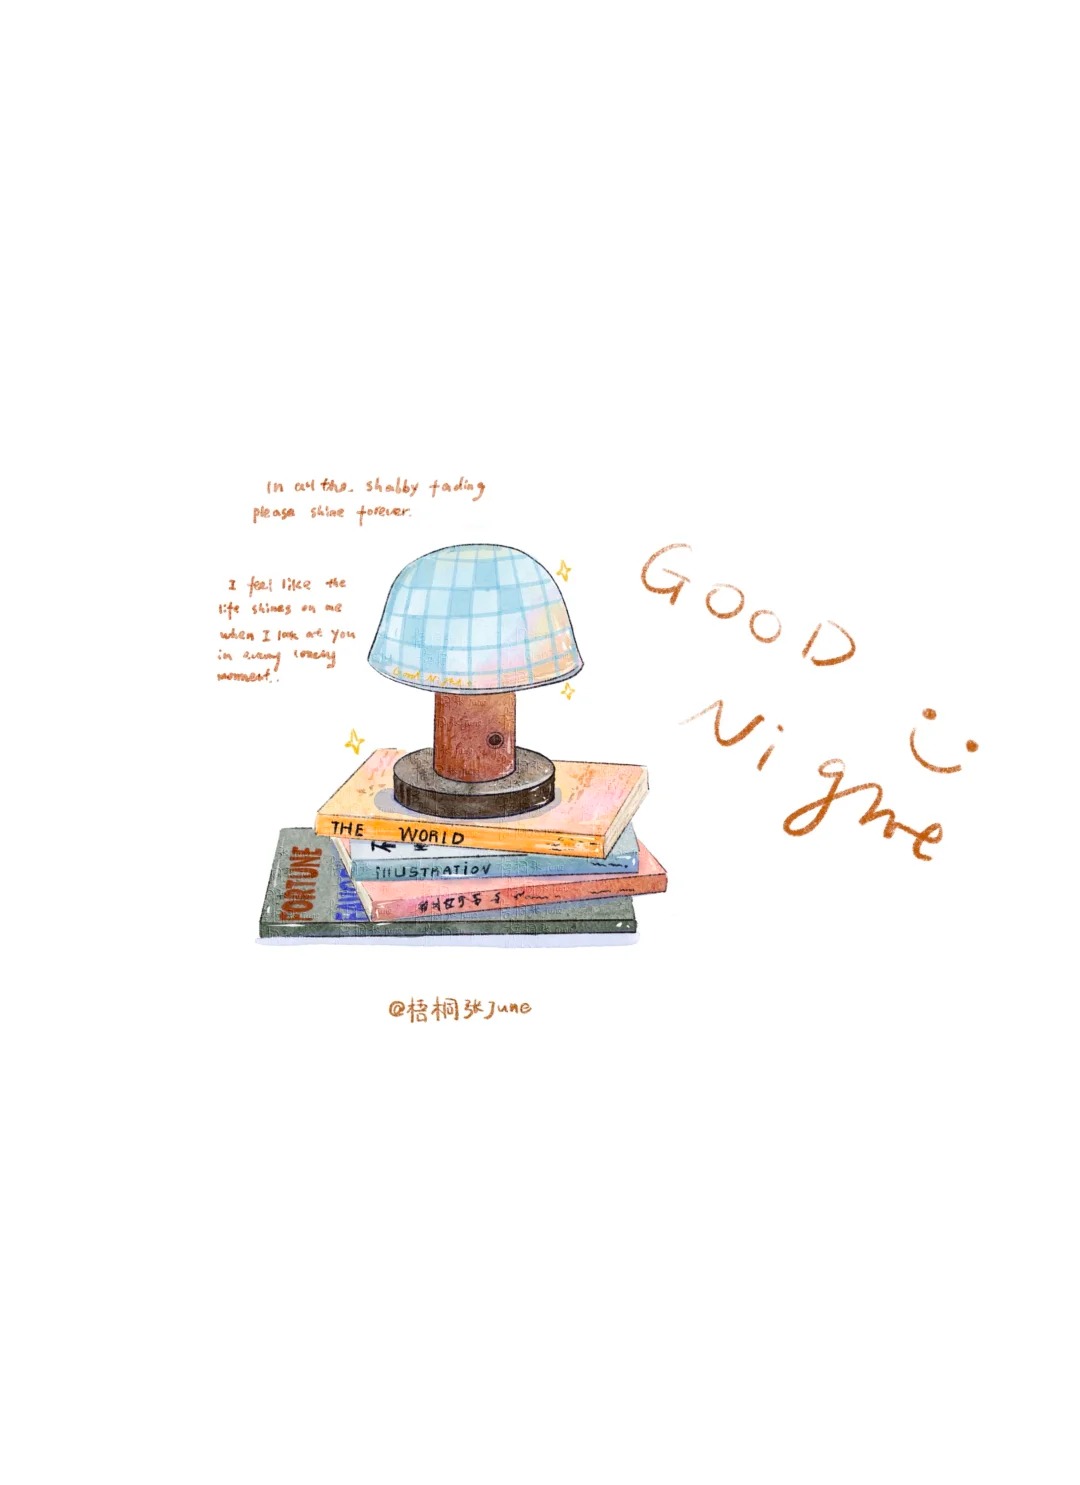 In all the shabby fading
please shine forever.
I feel like the
life shines on me
when I look at you
in every lonely
moment..
GOOD
Night
Good Night
THE WORLD
ILLUSTRATION
FORTUNE
@梧桐张June